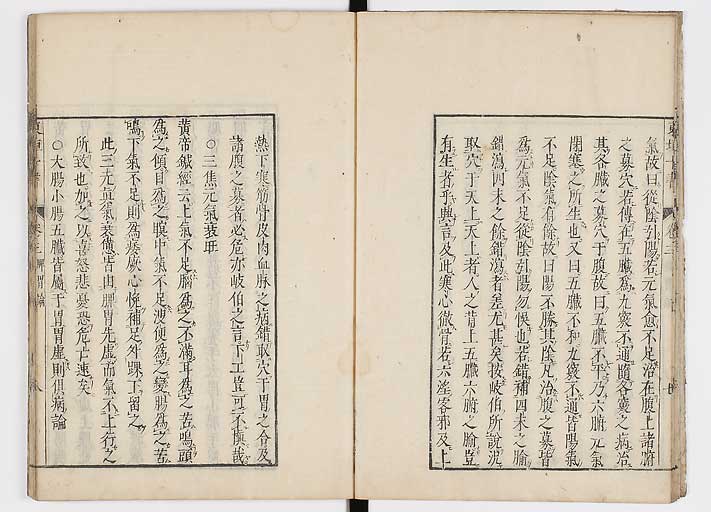 氣故曰從陰引陽若元氣愈不足治在腹上諸腑
之募穴若傳在五臟爲九竅不通隨各竅之病治
其各臟之募穴于腹故曰五臟不平乃六腑元氣
閉塞之所生也又曰五臟不和九竅不通皆陽氣
不足陰氣有餘故曰陽不勝其陰凡治腹之募皆
爲元氣不足從陰引陽勿悞也若錯補四末之腧
錯瀉四末之餘錯瀉者差尤甚矣按岐伯所說況
取穴于天上天上者人之背上五臟六腑之腧豈
有生者乎興言及此寒心徹骨若六淫客邪及上
熱下寒筋骨皮肉血脉之病錯取穴于胃之合及
諸腹之募者必危亦岐伯之言下工豈可不慎哉
○三焦元氣衰旺
黃帝鍼經云上氣不足腦爲之不滿耳爲之苦鳴頭
爲之傾目爲之瞑中氣不足溲便爲之變腸爲之苦
鳴下氣不足則爲痿厥心悗補足外踝下留之
此三元眞氣衰憊皆由脾胃先虛而氣不上行之
所致也加之以喜怒悲憂恐危亡速矣
○大腸小腸五臟皆屬于胃胃虛則俱病論
卷三 脾胃論